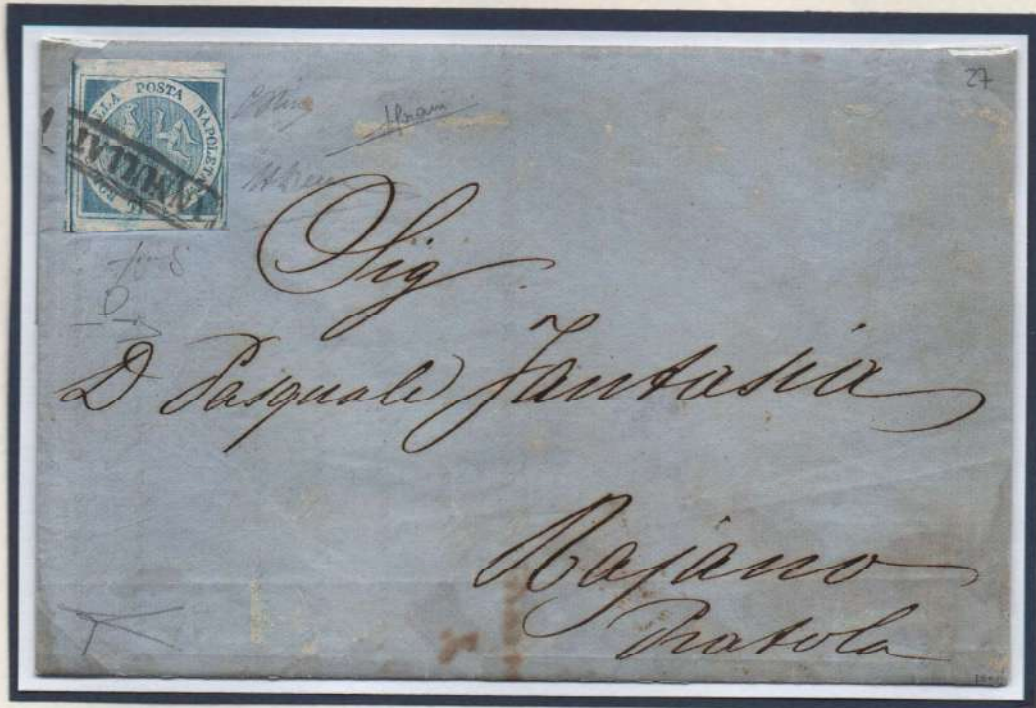 27
BOLLO DELLA POSTA NAPOLETANA
ANNULLATO
Sig
D Pasquale Fantasia
Rajano
Pratola